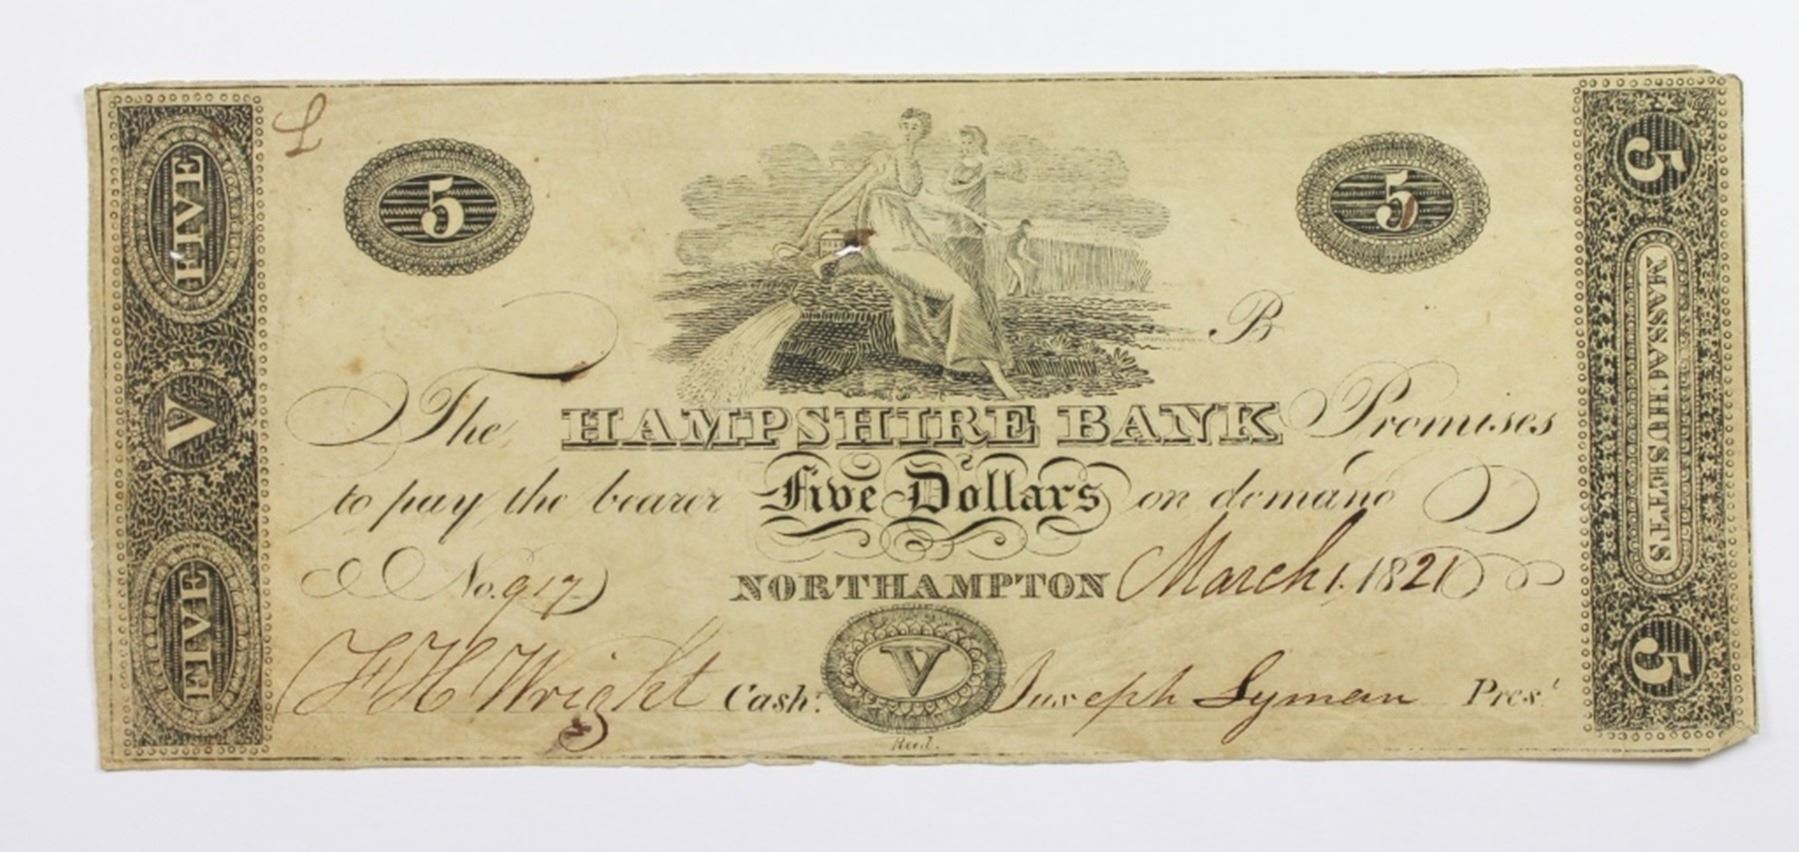 L
FIVE
V
FIVE
5
5
B
The HAMPSHIRE BANK Promises
to pay the bearer Five Dollars on demand
No. 917 NORTHAMPTON March 1. 1821
F H Wright Cash.r V Joseph Lyman Pres.t
Reed.
5
MASSACHUSETTS
5